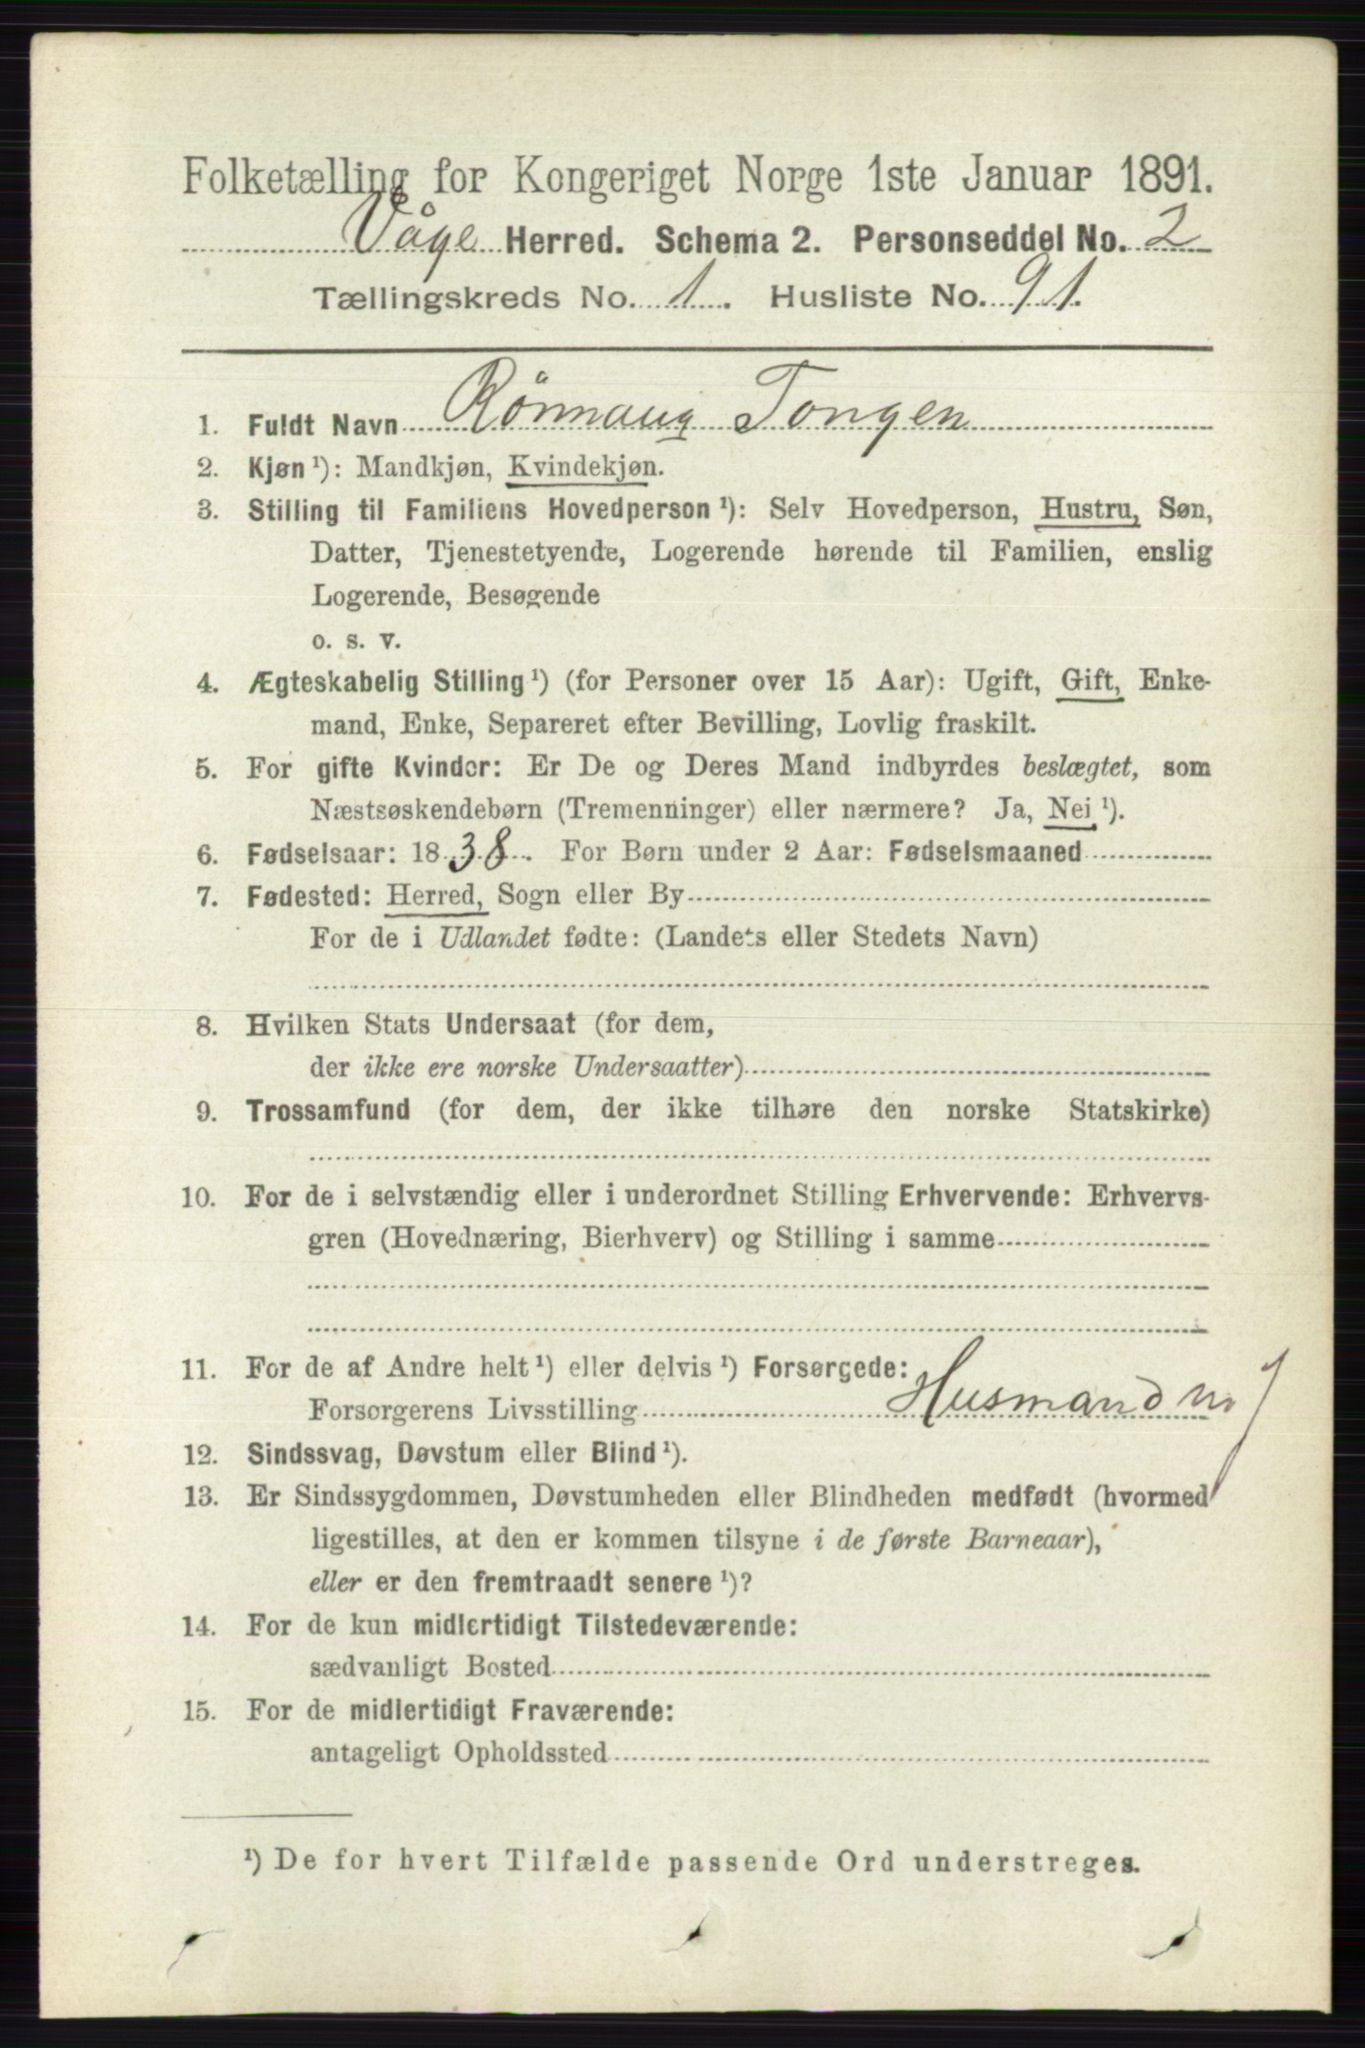 Folketælling for Kongeriget Norge 1ste Januar 1891.
Våge Herred. Schema 2. Personseddel No. 2
Tællingskreds No. 1. Husliste No. 91.
1. Fuldt Navn Rönnaug Tongen
2. Kjøn ¹): Mandkjøn, Kvindekjøn.
3. Stilling til Familiens Hovedperson ¹): Selv Hovedperson, Hustru, Søn,
Datter, Tjenestetyende, Logerende hørende til Familien, enslig
Logerende, Besøgende
o. s. v.
4. Ægteskabelig Stilling ¹) (for Personer over 15 Aar): Ugift, Gift, Enke-
mand, Enke, Separeret efter Bevilling, Lovlig fraskilt.
5. For gifte Kvinder: Er De og Deres Mand indbyrdes beslægtet, som
Næstsøskendebørn (Tremenninger) eller nærmere? Ja, Nei ¹).
6. Fødselsaar: 1838. For Børn under 2 Aar: Fødselsmaaned
7. Fødested: Herred, Sogn eller By
For de i Udlandet fødte: (Landets eller Stedets Navn)
8. Hvilken Stats Undersaat (for dem,
der ikke ere norske Undersaatter)
9. Trossamfund (for dem, der ikke tilhøre den norske Statskirke)
10. For de i selvstændig eller i underordnet Stilling Erhvervende: Erhvervs-
gren (Hovednæring, Bierhverv) og Stilling i samme
11. For de af Andre helt ¹) eller delvis ¹) Forsørgede:
Forsørgerens Livsstilling Husmand m J
12. Sindssvag, Døvstum eller Blind ¹).
13. Er Sindssygdommen, Døvstumheden eller Blindheden medfødt (hvormed
ligestilles, at den er kommen tilsyne i de første Barneaar),
eller er den fremtraadt senere ¹)?
14. For de kun midlertidigt Tilstedeværende:
sædvanligt Bosted
15. For de midlertidigt Fraværende:
antageligt Opholdssted
¹) De for hvert Tilfælde passende Ord understreges.